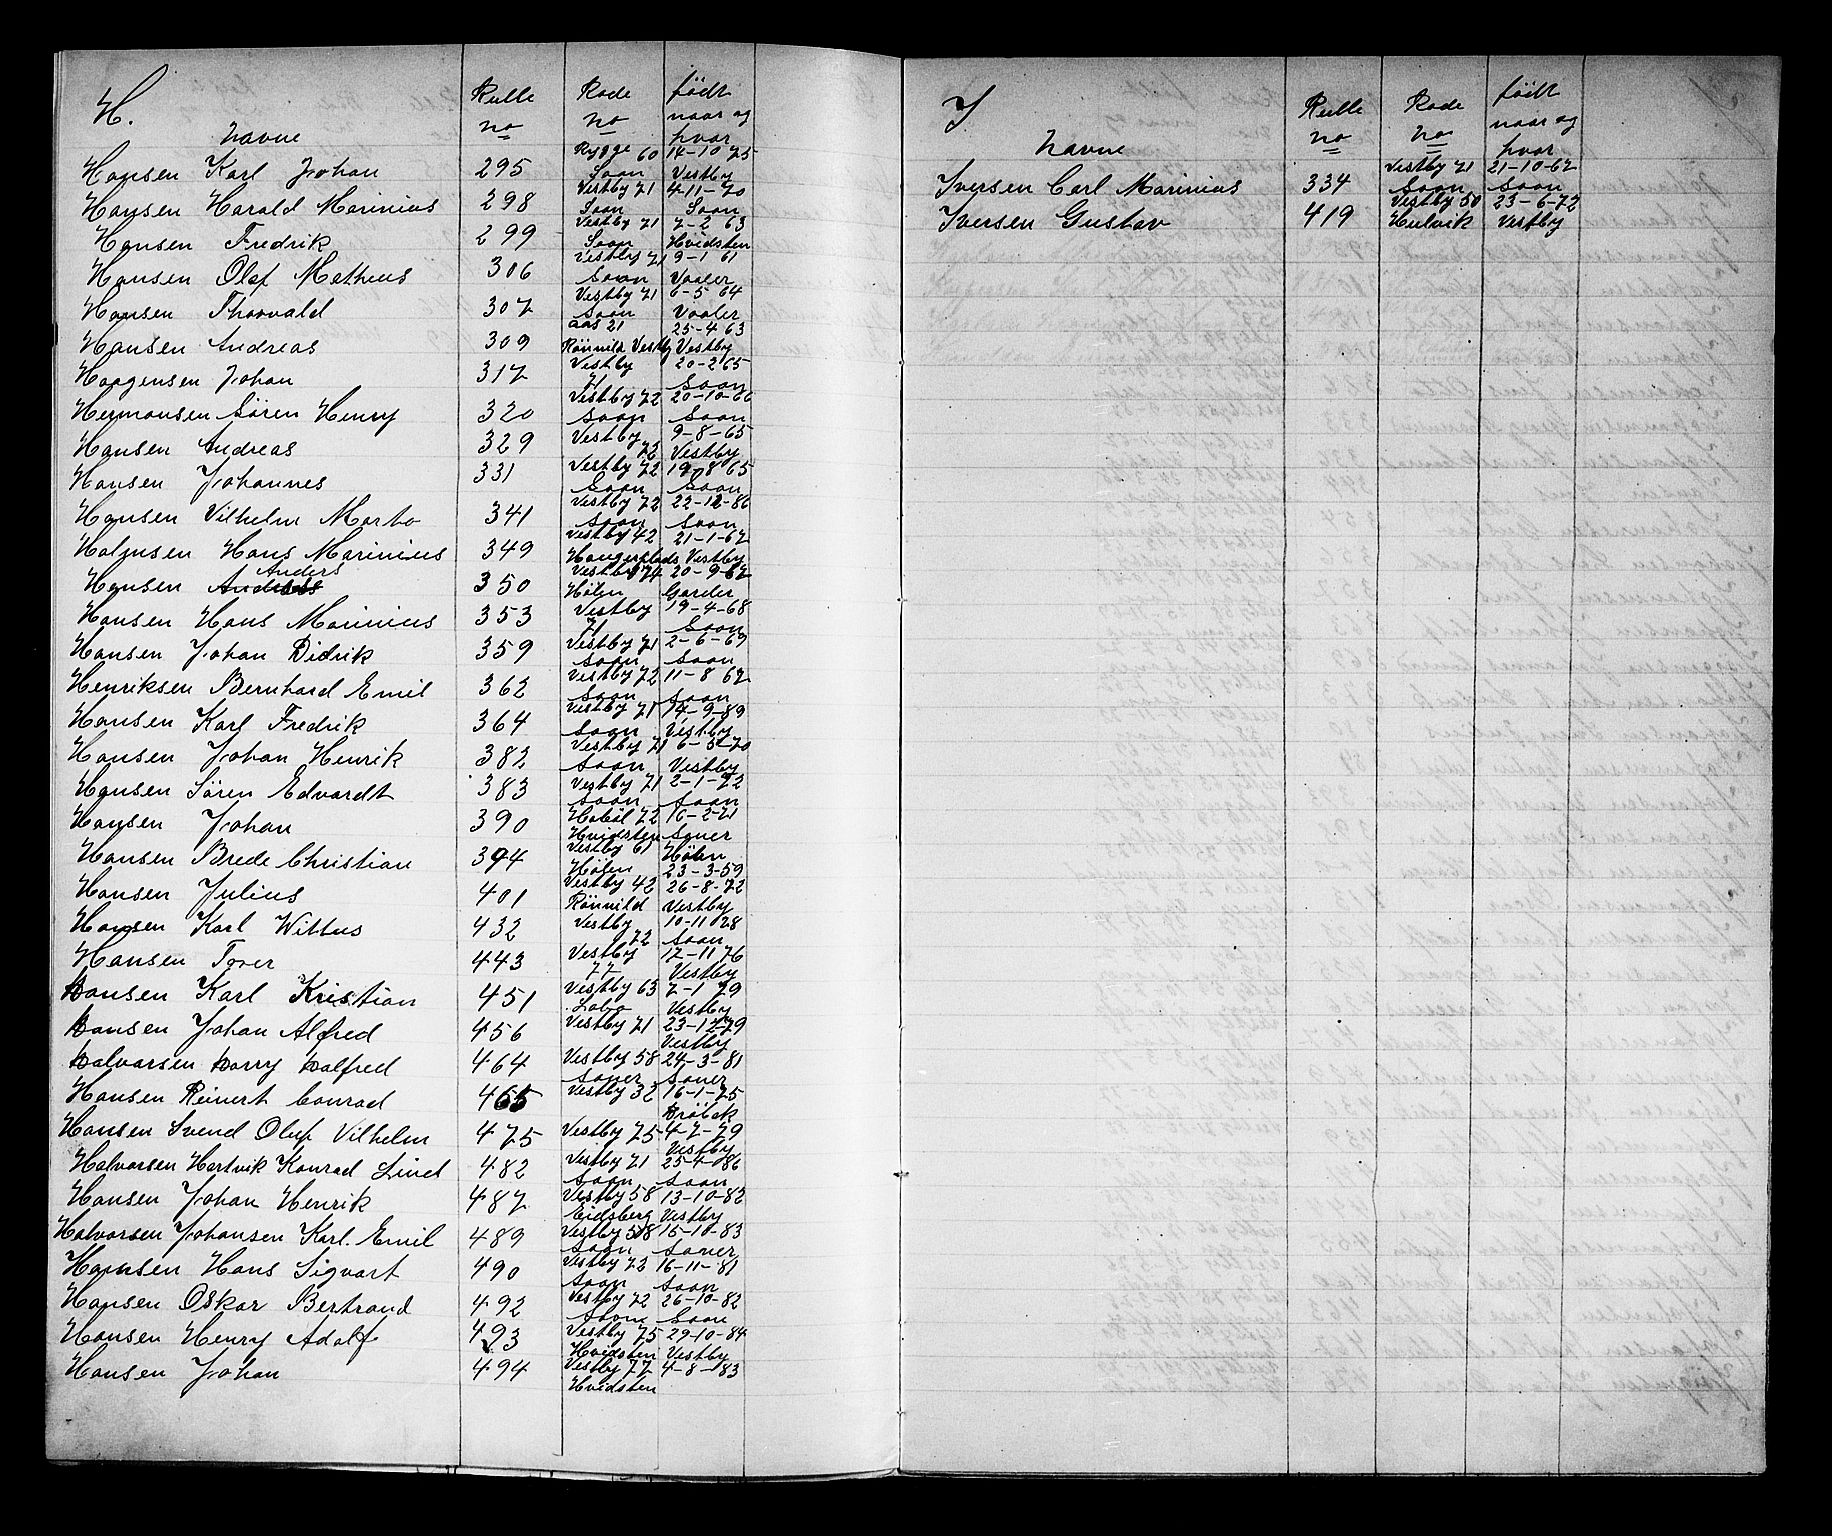 H.
Navne Rulle no Rode no födt naar og hvor
Hansen Karl Johan 295 Rygge 60 14-10 75
Saan Vestby
Hansen Harald Marinius 298 Vestby 71 4-11-70
Saan Saan
Hansen Fredrik 299 Vestby 71 7-2 63
Saan Hvidsten
Hansen Olaf Matheus 306 Vestby 71 9-1 61
Saan Vaaler
Hansen Thorvald 307 Vestby 71 6-5 64
Saan Vaaler
Hansen Andreas 309 aas 21 25-4 63
Rönnild Vestby Vestby
Haagensen Johan 317 Vestby 20-2 65
71 Saan
Hermansen Sören Henry 320 Vestby 72 20-10-66
Saan Saan
Hansen Andreas 329 Vestby 9-8-65
72 Vestby
Hansen Johannes 331 Vestby 72 19-8 65
Saan Saan
Hansen Vilhelm Marto 341 Vestby 72 22-12-86
Saan Saan
Halgnsen Hans Marinius 349 Vestby 42 21-1-67
Vestby
Hansen Anders 350 Vestby 74 20-9-67
Hölen Garder
Hansen Hans Marinius 353 Vestby 19-4-68
71 Saan
Hansen Johan Didrik 359 Vestby 71 2-6-69
Saan Saan
Henriksen Bernhard Emil 362 Vestby 72 11-8 67
Saan Saan
Hansen Karl Fredrik 364 Vestby 71 14-9-89
Saan Vestby
Hansen Johan Henrik 382 Vestby 71 6-5-70
Saan Vestby
Hansen Sören Edvardt 383 Vestby 71 2-1-72
Saan Saan
Hansen Johan 390 Haböl 72 16-2-71
Hvidsten Saner
Hansen Brede Christian 394 Vestby 61 Hölen
Hölen 23-3-59
Hansen Julius 401 Vestby 42 26-8-72
Rönnild Vestby
Hansen Karl Wittus 432 Vestby 10-11 78
72 Saan
Hansen Torer 443 Vestby 17-11 76
77 Vestby
Hansen Karl Kristian 451 Vestby 63 7-1 79
Labo Vestby
Hansen Johan Alfred 456 Vestby 71 23-12-79
Vestby
Halvarsen Harry Halfred 464 Vestby 58 24-3-81
Saner Saner
Hansen Reinert Conrad 465 Vestby 32 16-1-75
Dröbak
Hansen Svend Oluf Vilhelm 475 Vestby 75 4-7-79
Vestby
Halvarsen Hartvik Konrad Lindt 482 Vestby 71 25-4-86
Saan Saan
Hansen Johan Henrik 487 Vestby 58 13-10-82
Eidsberg Vestby
Halvorsen Johansen Karl. Emil 489 Vestby 58 15-10-83
Saan Saner
Hansen Hans Sigvart 490 Vestby 72 16-11-81
Saan Saan
Hansen Oskar Bertrand 492 Vestby 72 26-10-82
Saan
Hansen Henry Adolf 493 Vestby 75 29-10-84
Hvidsten Vestby
Hansen Johan 494 Vestby 77 4-8-83
Hvidsten
I
Navne Rulle no Rode no födt naar og hvor
Iversen Carl Marinius 334 Vestby 71 21-10-67
Saan Saan
Iversen Gustav 419 Vestby 50 23-6-72
Hulvik Vestby